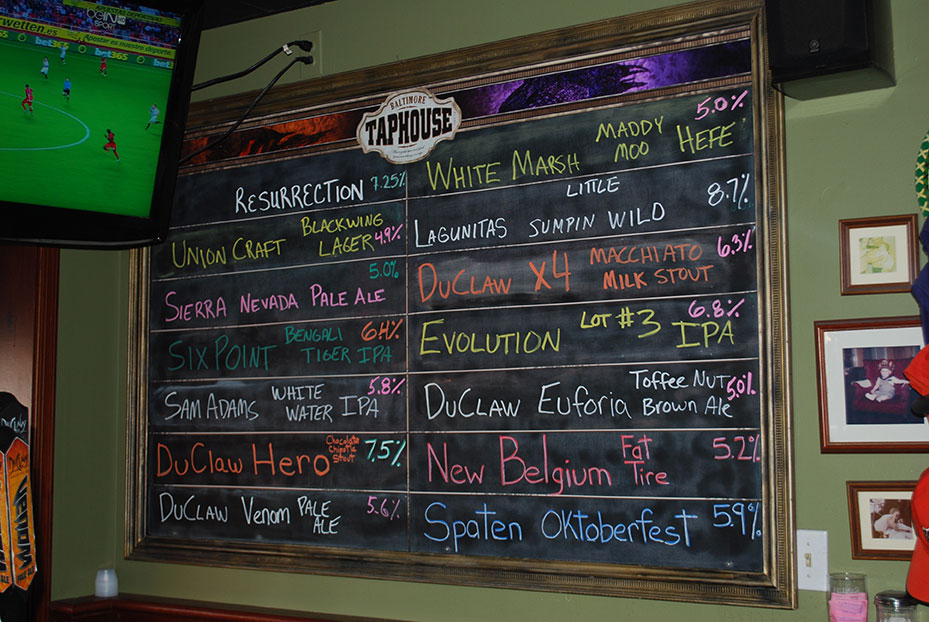 beIN SPORT
Apostar es nuestro deporte
bet365
bet365
bet365
BALTIMORE
TAPHOUSE
RESURRECTION 7.25%
UNION CRAFT BLACKWING LAGER 4.9%
SIERRA NEVADA PALE ALE 5.0%
SIXPOINT BENGALI TIGER IPA 6.4%
SAM ADAMS WHITE WATER IPA 5.8%
DUCLAW HERO Chocolate Chipotle Stout 7.5%
DUCLAW VENOM PALE ALE 5.6%
WHITE MARSH MADDY MOO HEFE 5.0%
LAGUNITAS LITTLE SUMPIN WILD 8.7%
DUCLAW X4 MACCHIATO MILK STOUT 6.3%
EVOLUTION LOT #3 IPA 6.8%
DUCLAW Euforia Toffee Nut Brown Ale 5.0%
New Belgium Fat Tire 5.2%
Spaten Oktoberfest 5.9%